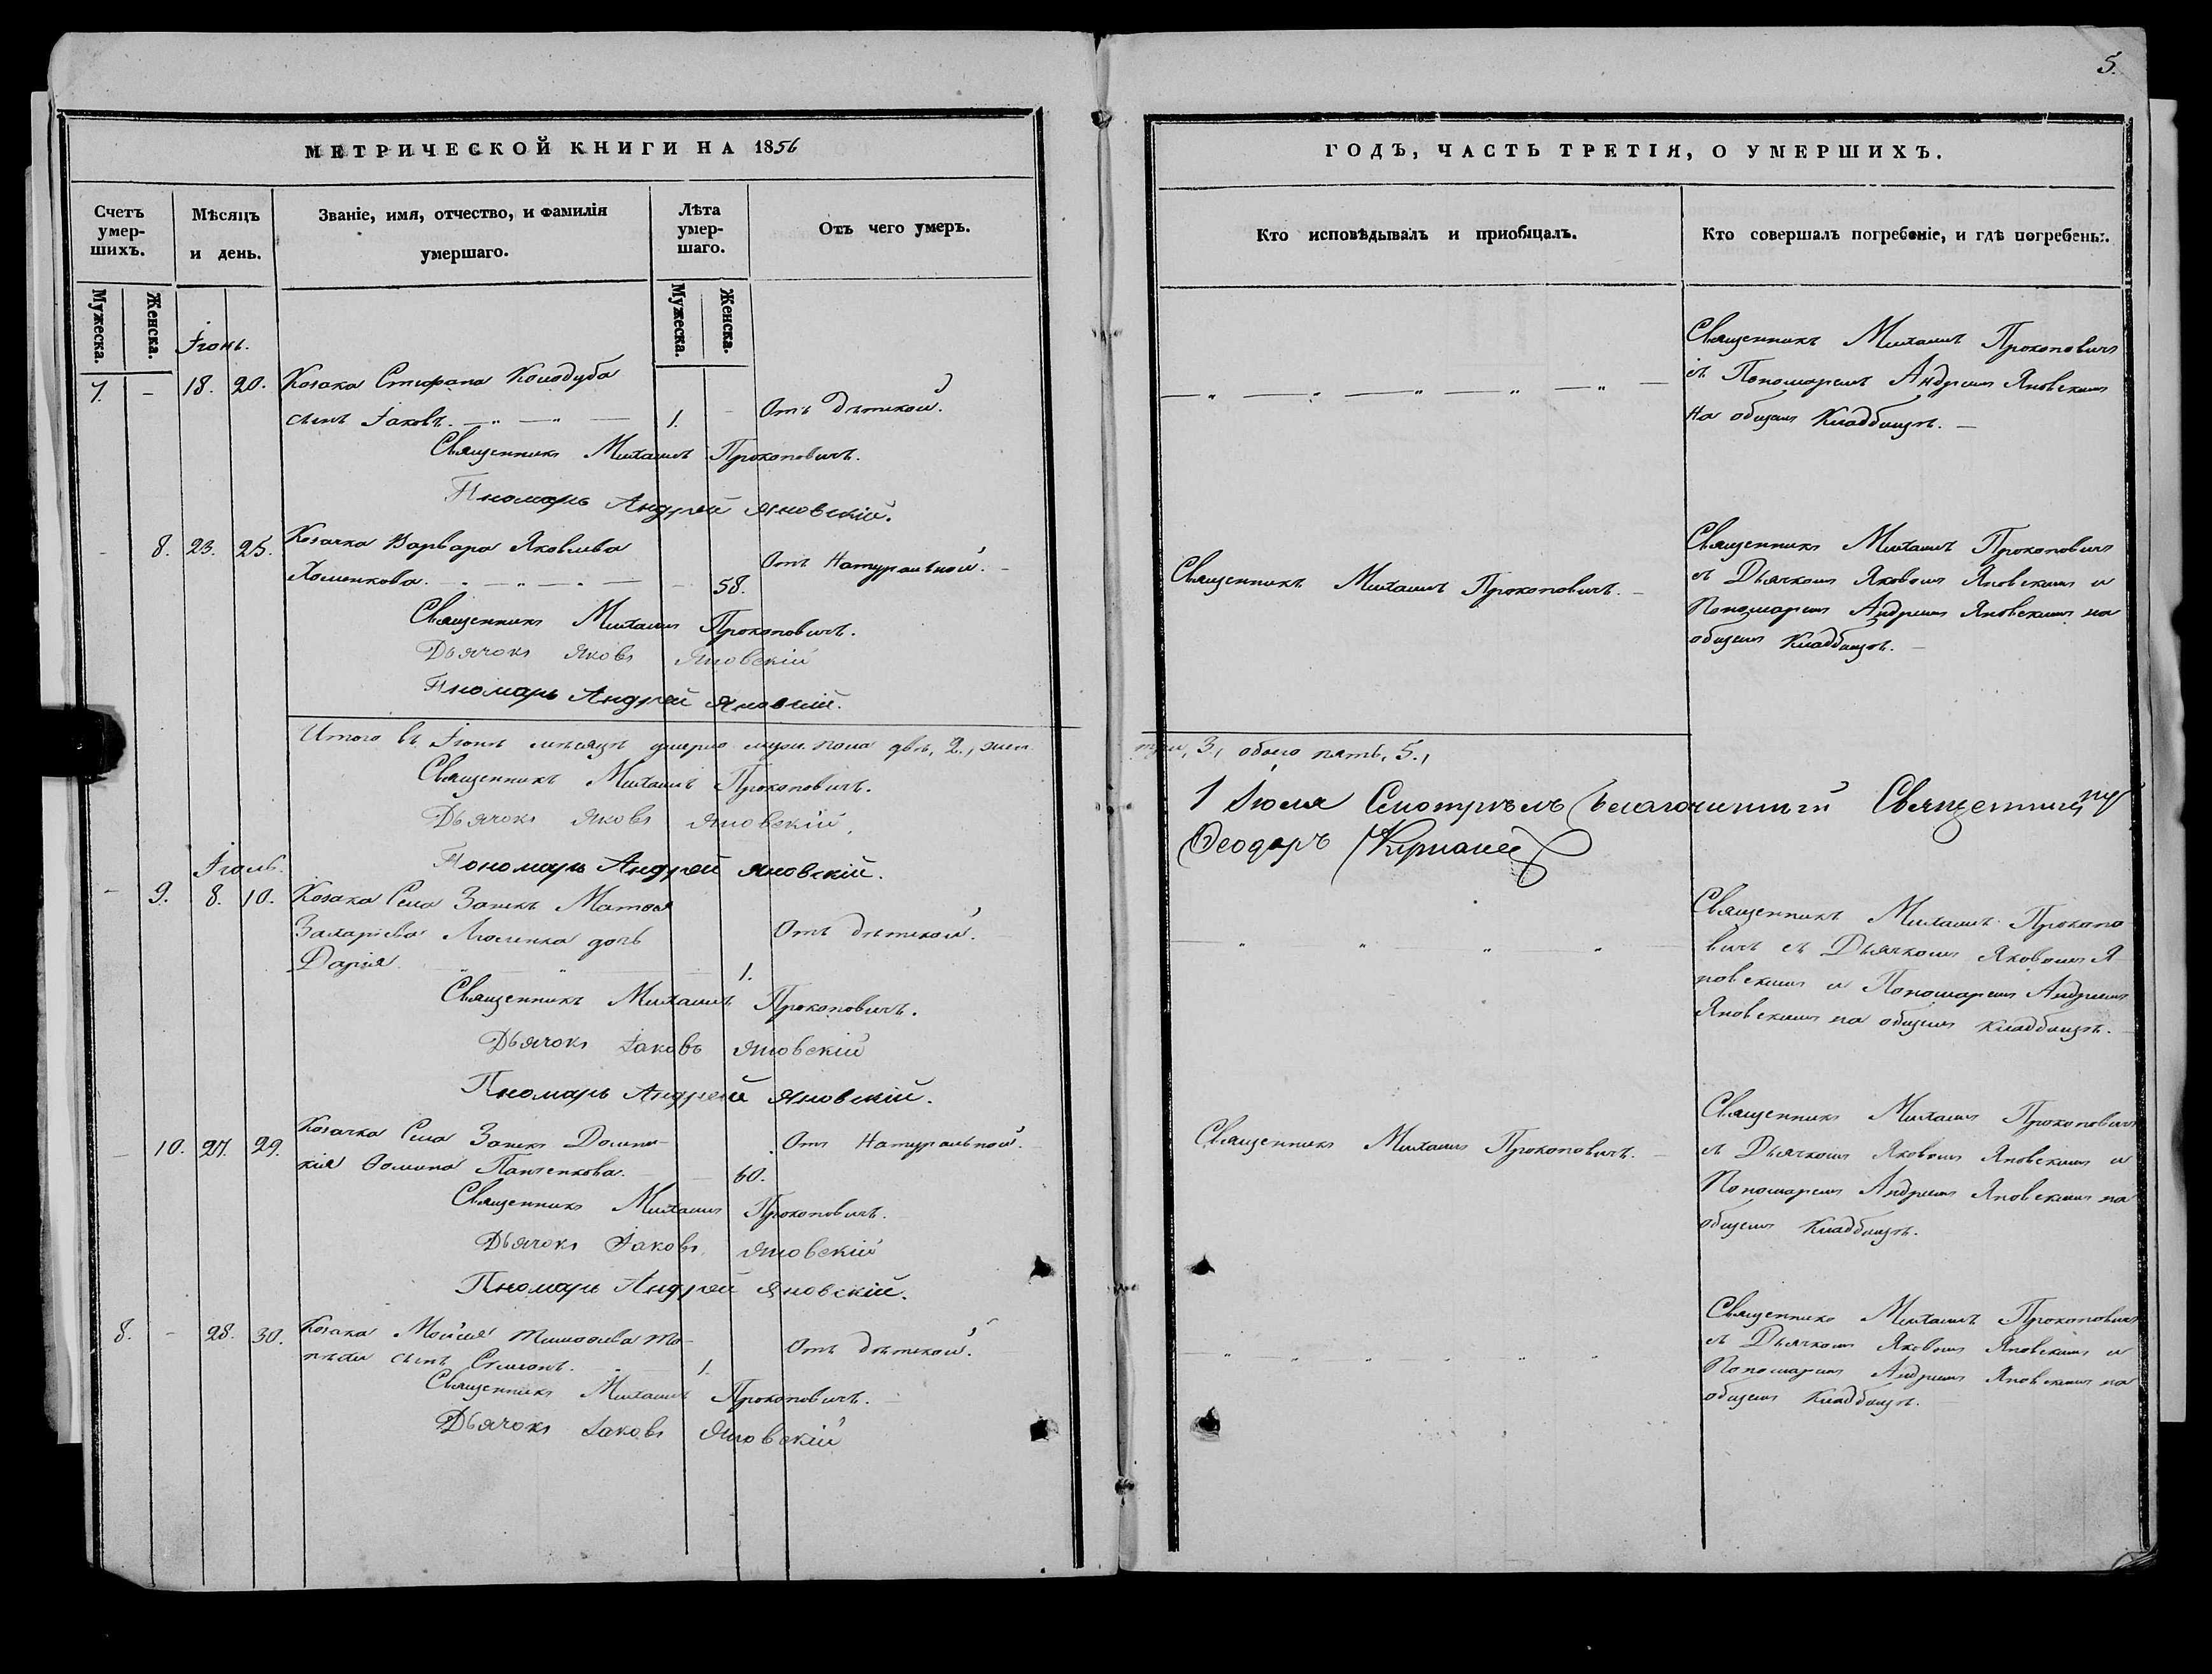 5.
МЕТРИЧЕСКОЙ КНИГИ НА 1856
ГОДЪ, ЧАСТЬ ТРЕТІЯ, О УМЕРШИХЪ.
Счетъ умер-шихъ.
Мужеска.
Женска.
Мѣсяцъ и день.
Званіе, имя, отчество, и фамилія умершаго.
Лѣта умер-шаго.
Мужеска.
Женска.
Отъ чего умеръ.
Кто исповѣдывалъ и приобщалъ.
Кто совершалъ погребеніе, и гдѣ погребены.
Іюнь.
7. – 18. 20. Козака Стефана Колодуба
сынъ Іаковъ. 1. – Отъ дѣтской.
Священникъ Михаилъ Прокоповичъ.
Пномарь Андрей Яновскій.
Священникъ Михаилъ Прокоповичъ
съ Пономаремъ Андреемъ Яновскимъ
на общемъ Кладбищѣ. –
– 8. 23. 25. Козачка Варвара Яковлева
Хоменкова. 58. Отъ Натуральной. –
Священникъ Михаилъ Прокоповичъ.
Дьячокъ Яковъ Яновскій
Пномарь Андрей Яновскій.
Священникъ Михаилъ Прокоповичъ. –
Священникъ Михаилъ Прокоповичъ
съ Дьячкомъ Яковомъ Яновскимъ и
Пономаремъ Андреемъ Яновскимъ на
общемъ Кладбищѣ. –
Итого въ Іюнѣ мѣсяцѣ умерло муж. пола два, 2., жен.
три, 3., обоего пять, 5.,
Священникъ Михаилъ Прокоповичъ.
Дьячокъ Яковъ Яновскій,
Пономарь Андрей Яновскій.
1 Іюля Смотрѣлъ Благочинный Священникъ
Феодоръ
Іюль.
– 9. 8. 10. Козака Села Заѣкъ Матѳея
Захаріева дочь
Дарія. 1. Отъ дѣтской.
Священникъ Михаилъ Прокоповичъ.
Дьячокъ Іаковъ Яновскій
Пномарь Андрей Яновскій.
Священникъ Михаилъ Прокопо
вичъ съ Дьячкомъ Яковомъ Я
новскимъ и Пономаремъ Андреемъ
Яновскимъ на общемъ Кладбищѣ.
– 10. 27. 29. Козачка Села Заѣкъ Домни-
кія Ѳомина Панченкова. 60. Отъ Натуральной.
Священникъ Михаилъ Прокоповичъ.
Дьячокъ Іаковъ Яновскій
Пномарь Андрей Яновскій.
Священникъ Михаилъ Прокоповичъ. –
Священникъ Михаилъ Прокоповичъ
съ Дьячкомъ Яковомъ Яновскимъ и
Пономаремъ Андреемъ Яновскимъ на
общемъ Кладбищѣ.
8. – 28. 30. Козака Тимоѳеева
сынъ Стефанъ. 1. Отъ дѣтской.
Священникъ Михаилъ Прокоповичъ.
Дьячокъ Іаковъ Яновскій
Священникъ Михаилъ Прокоповичъ
съ Дьячкомъ Яковомъ Яновскимъ и
Пономаремъ Андреемъ Яновскимъ на
общемъ Кладбищѣ.